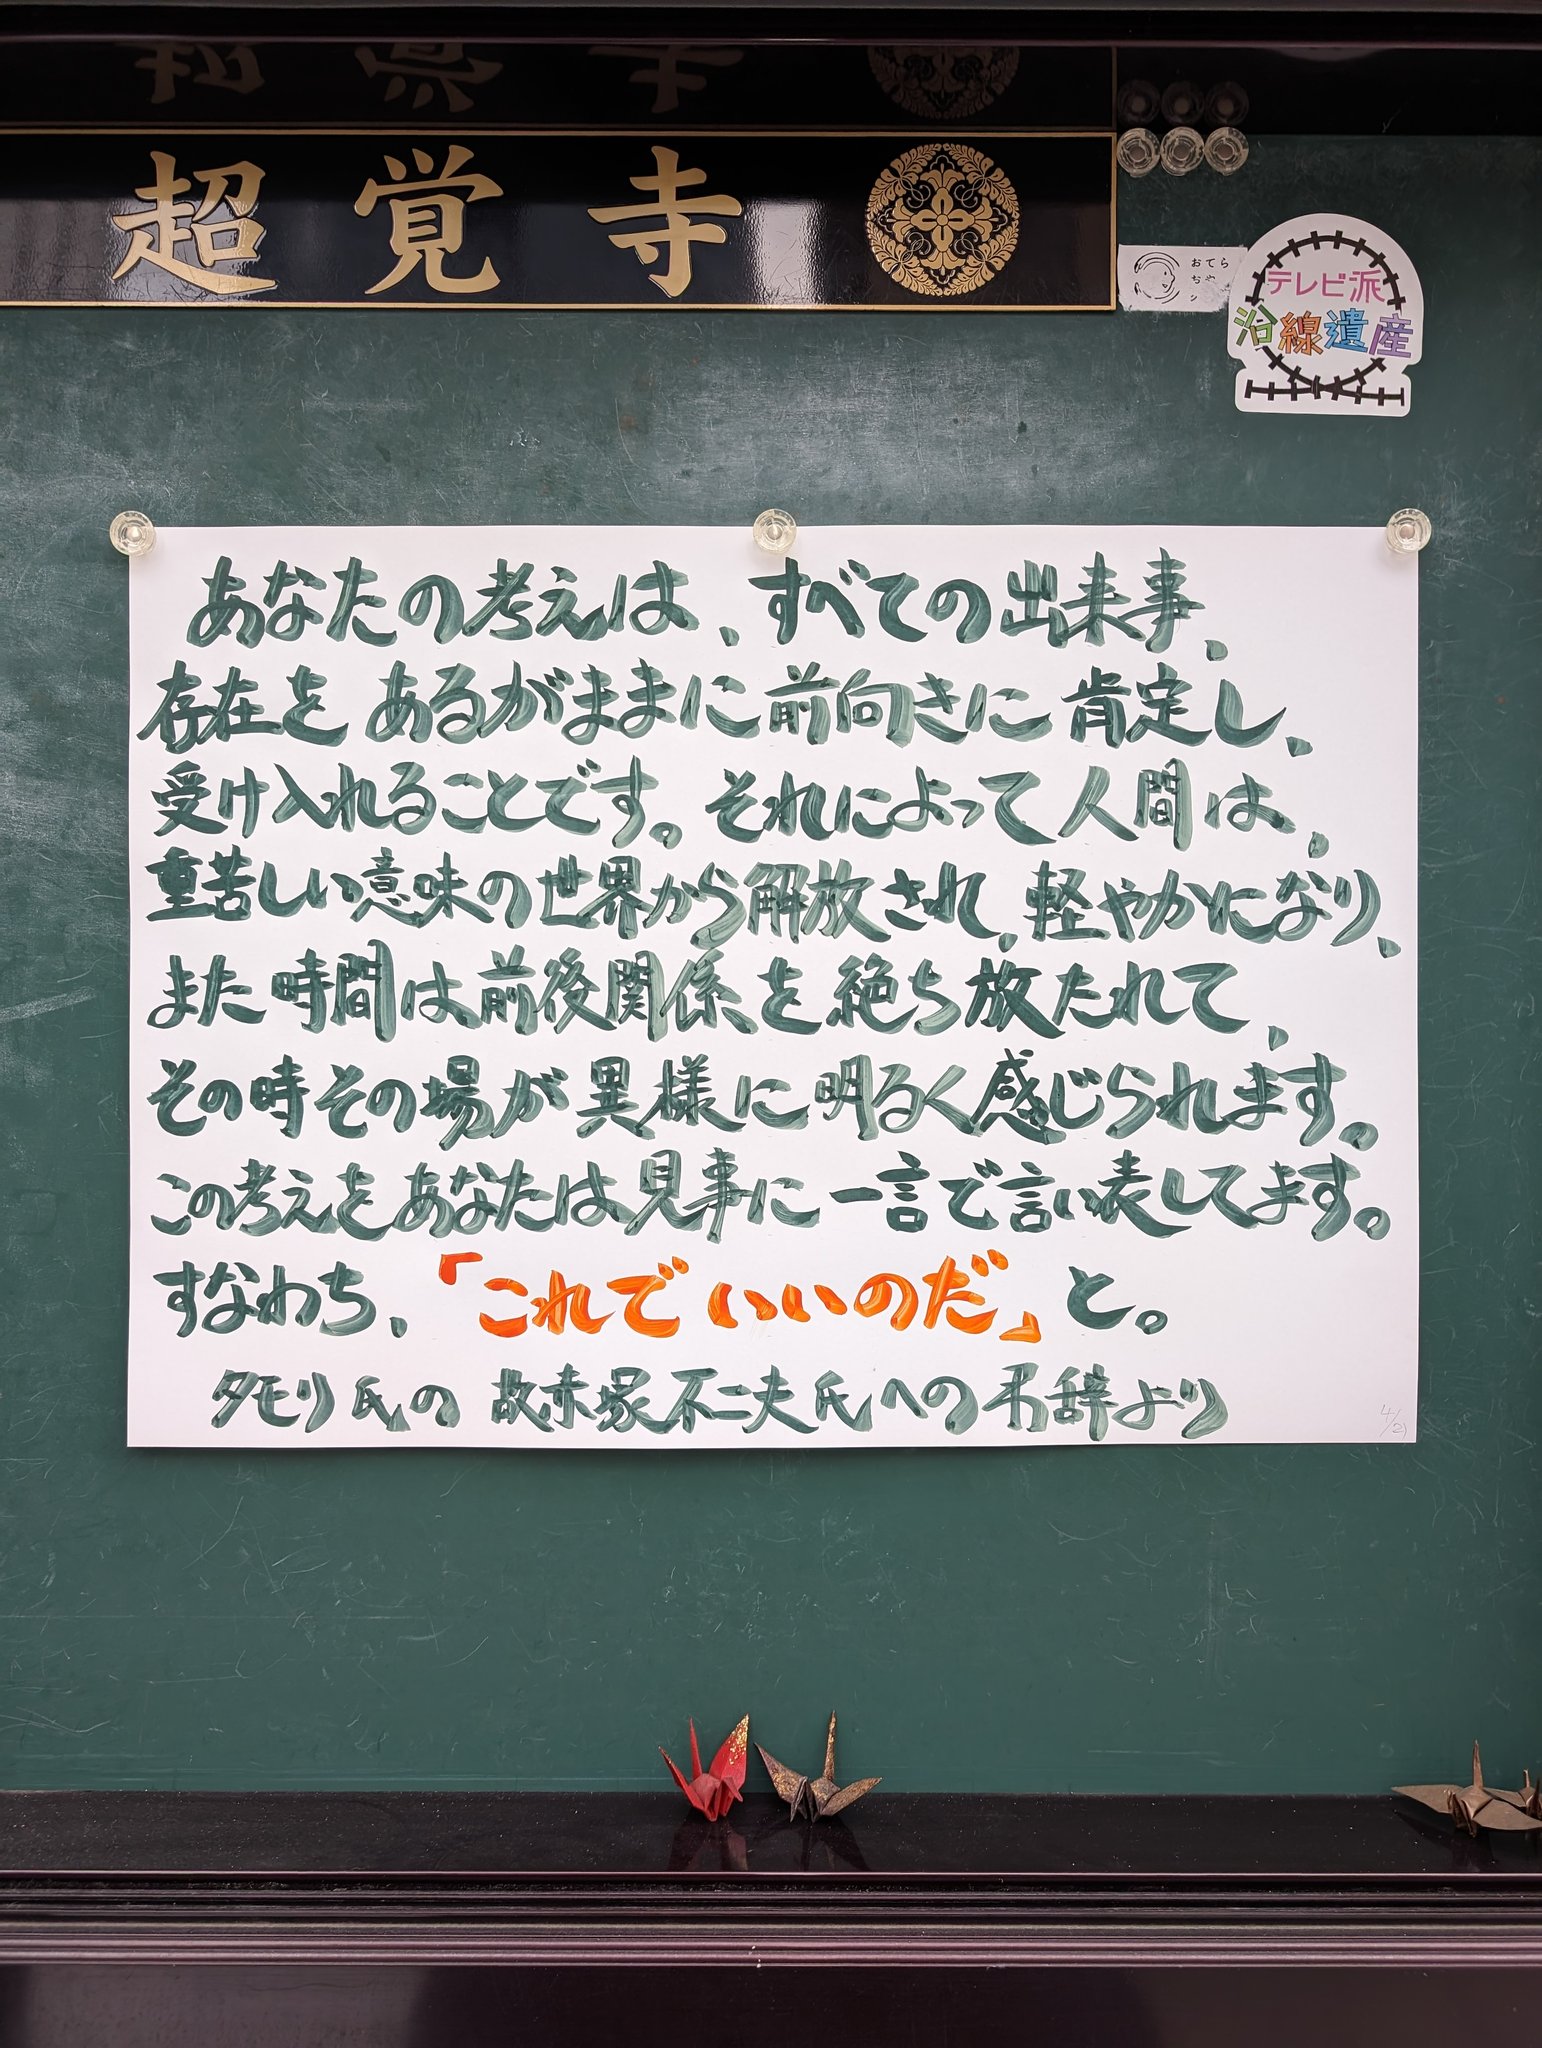 超覚寺
おてら
テレビ派
沿線遺産
あなたの考えは、すべての出来事、
存在をあるがままに前向きに肯定し、
受け入れることです。それによって人間は、
重苦しい意味の世界から解放され、軽やかになり、
また時間は前後関係を絶ち放たれて、
その時その場が異様に明るく感じられます。
この考えをあなたは見事に一言で言い表してます。
すなわち、「これでいいのだ」と。
タモリ氏の故赤塚不二夫氏への弔辞より
4/21